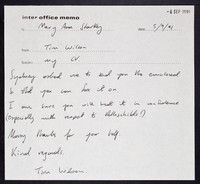 inter office memo
-6 SEP 1991
to Mary Ann Sharkey
date 5/9/91
from Tim Wilson
subject my CV.
Sydney asked me to send you the enclosed
so that you can have it on
I am sure you will treat it in confidence
(especially with respect to Rothschilds!)
Many thanks for your help
Kind regards.
Tim Wilson